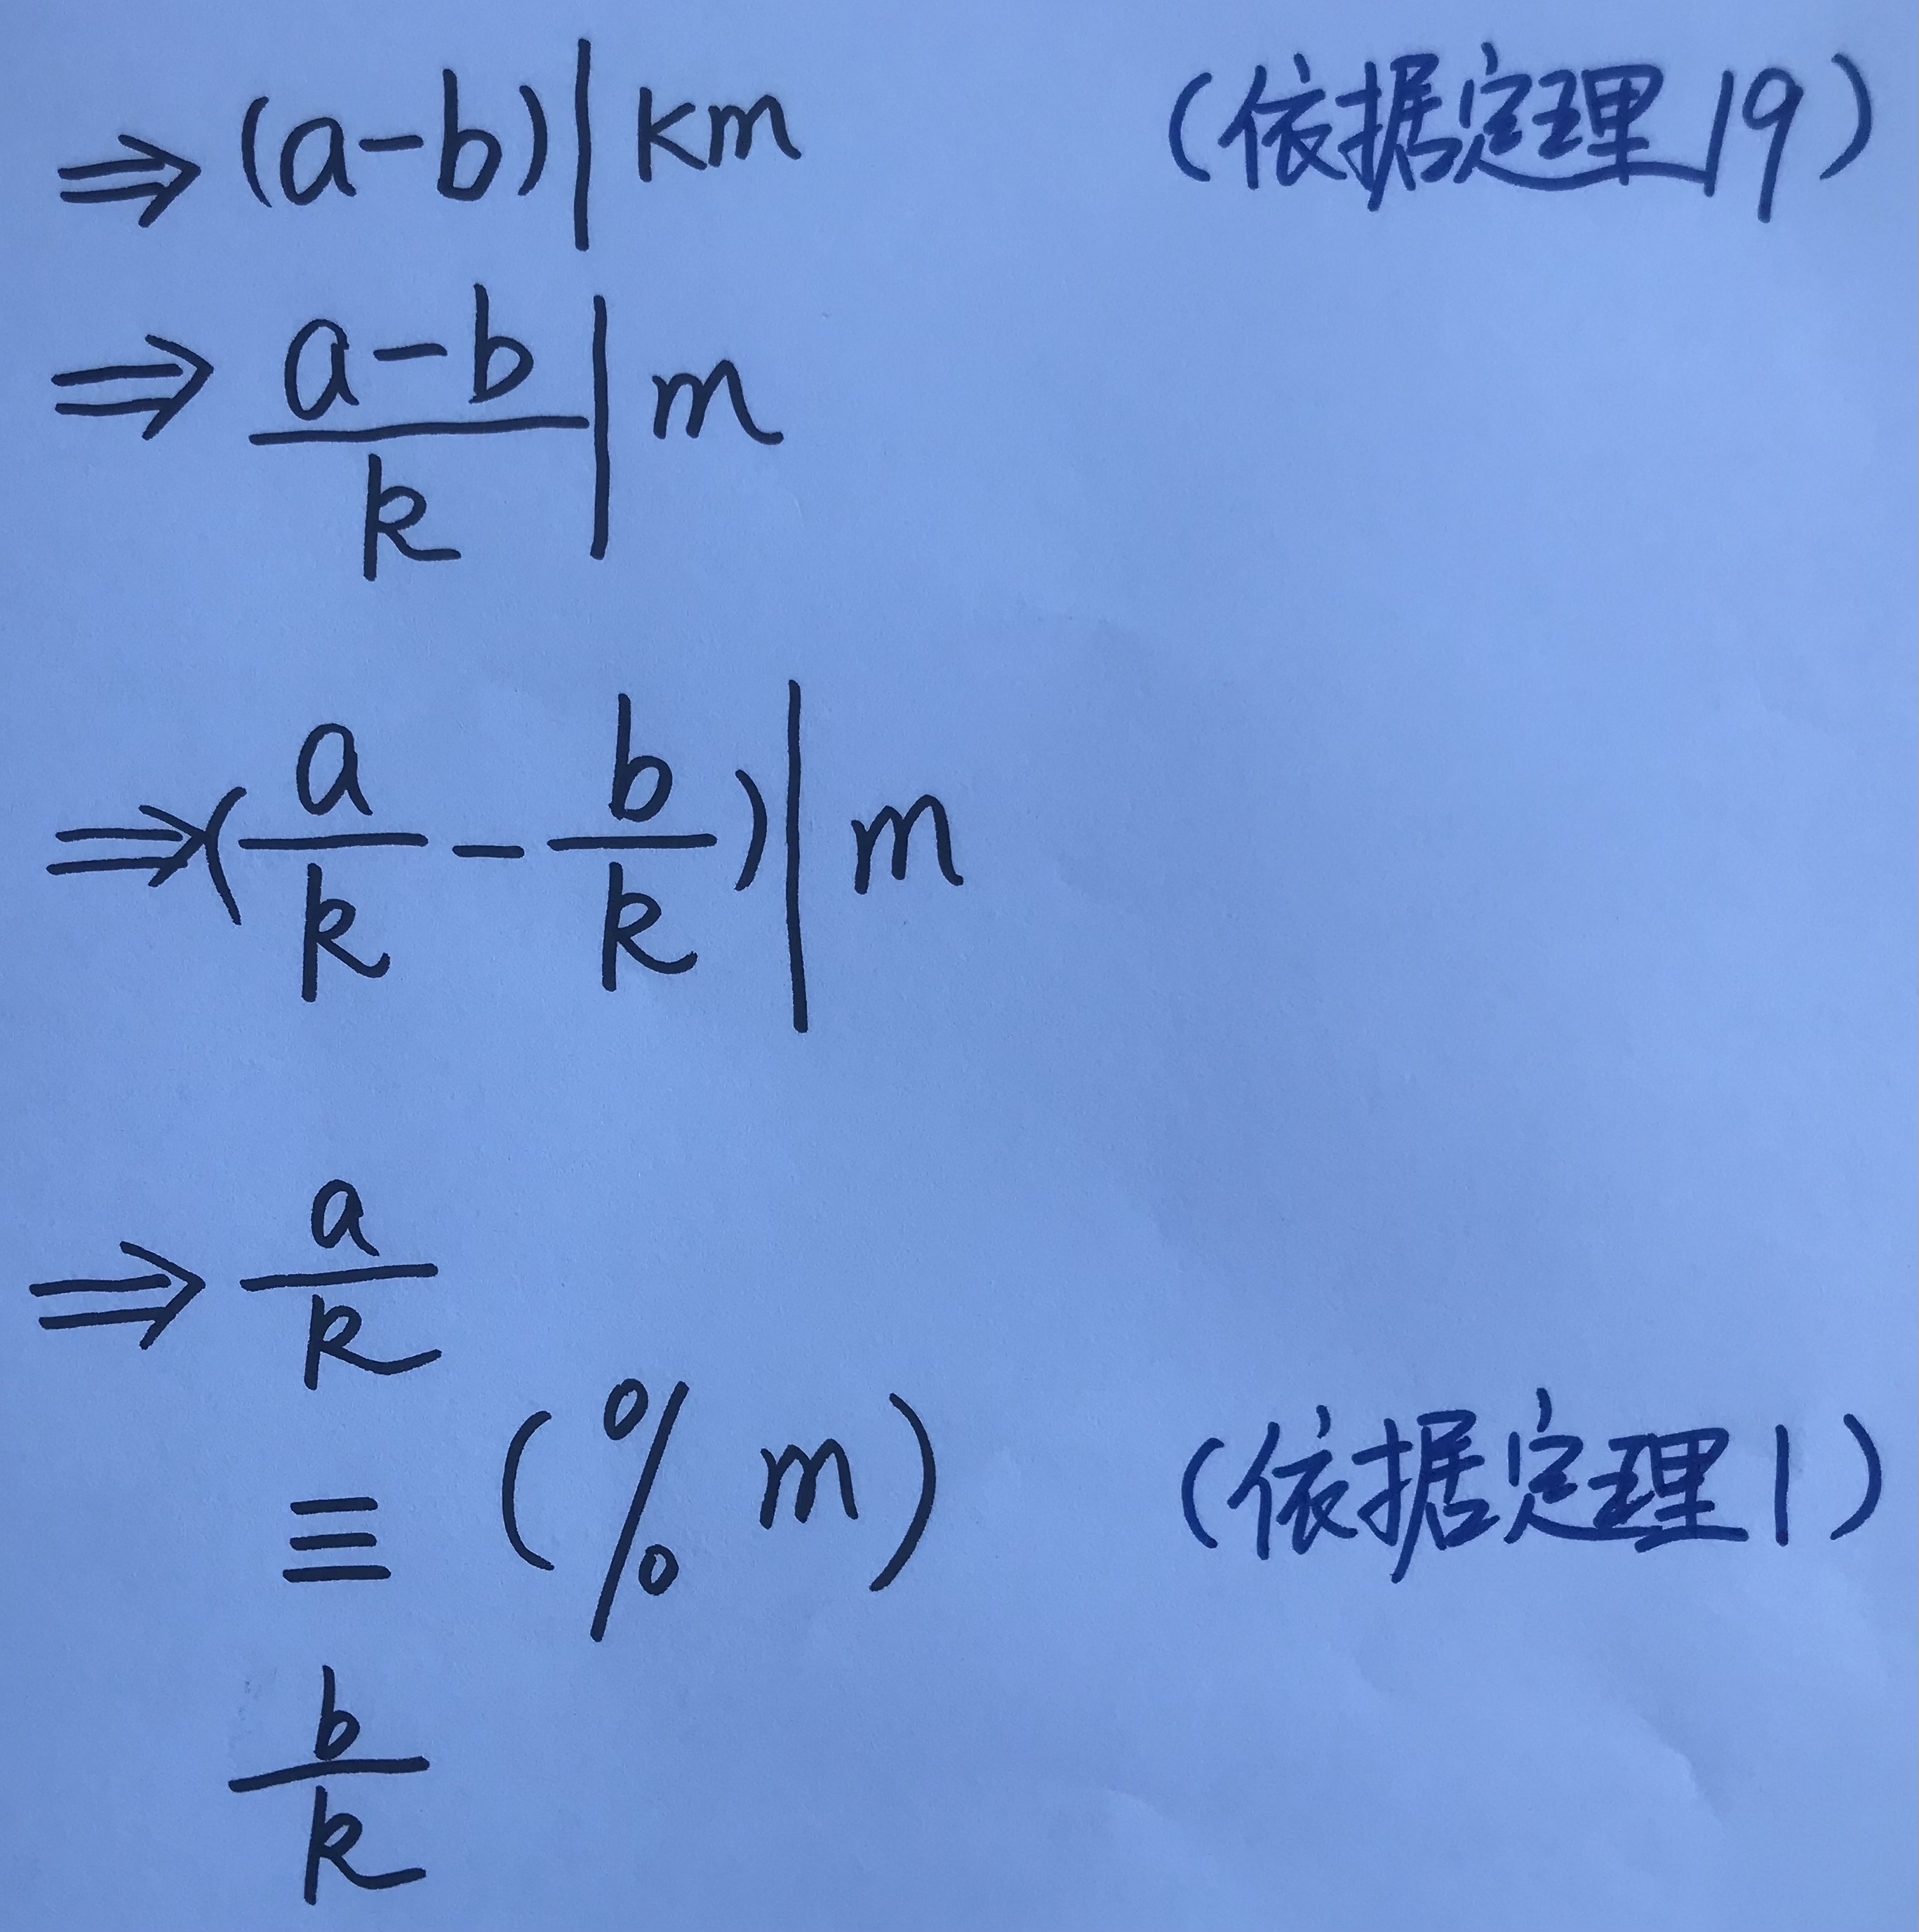 ⇒(a-b)|km (依据定理19)
⇒ a-b
k | m
⇒( a/k - b/k )| m
⇒ a
k
≡ (% m) (依据定理1)
b
k